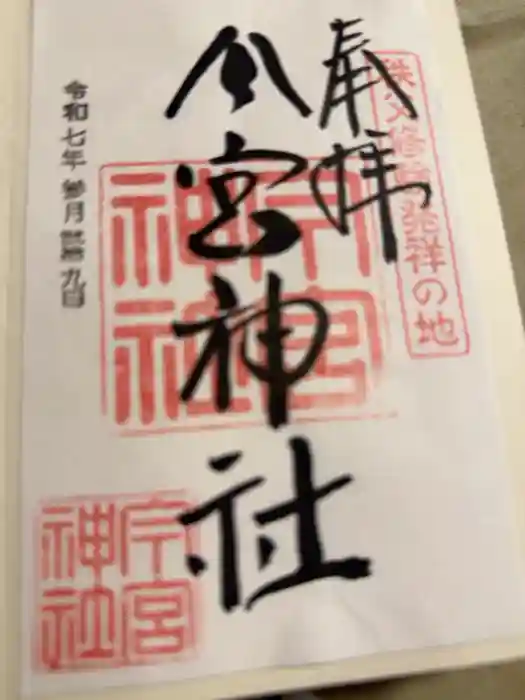 秩父修験発祥の地
奉拝
今宮神社
今宮神社
令和七年 参月 九日
今宮神社